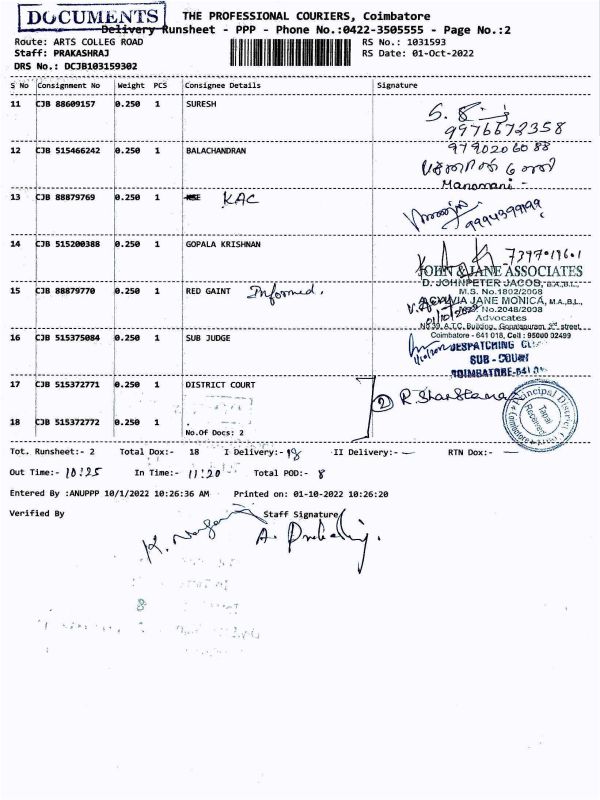 DOCUMENTS
THE PROFESSIONAL COURIERS, Coimbatore
Delivery Runsheet - PPP - Phone No.:0422-3505555 - Page No.:2
Route: ARTS COLLEG ROAD RS No.: 1031593
Staff: PRAKASHRAJ RS Date: 01-Oct-2022
DRS No.: DCJB103159302
S No Consignment No Weight PCS Consignee Details Signature
11 CJB 88609157 0.250 1 SURESH
9976672358
12 CJB 515466242 0.250 1 BALACHANDRAN 9790206088
Manomani -
13 CJB 88879769 0.250 1 KAC
9994399199
14 CJB 515200388 0.250 1 GOPALA KRISHNAN
JOHN & JANE ASSOCIATES
D. JOHNPETER JACOB, B.A.,B.L.,
15 CJB 88879770 0.250 1 RED GAINT Informed. M.S. No.1802/2008
JANE MONICA, M.A.,B.L.,
No.2048/2008
Advocates
No.39, A.T.C. Building, Gopalapuram, 3rd street,
16 CJB 515375084 0.250 1 SUB JUDGE Coimbatore - 641 018, Cell : 95000 02499
DESPATCHING
SUB - COURT
COIMBATORE-641 01
17 CJB 515372771 0.250 1 DISTRICT COURT
2
Principal District
Tapal Received
Coimbatore
18 CJB 515372772 0.250 1 .
No.Of Docs: 2
Tot. Runsheet:- 2 Total Dox:- 18 I Delivery:- 18 II Delivery:- — RTN Dox:- —
Out Time:- 10:25 In Time:- 11:20 Total POD:- 8
Entered By :ANUPPP 10/1/2022 10:26:36 AM Printed on: 01-10-2022 10:26:20
Verified By Staff Signature